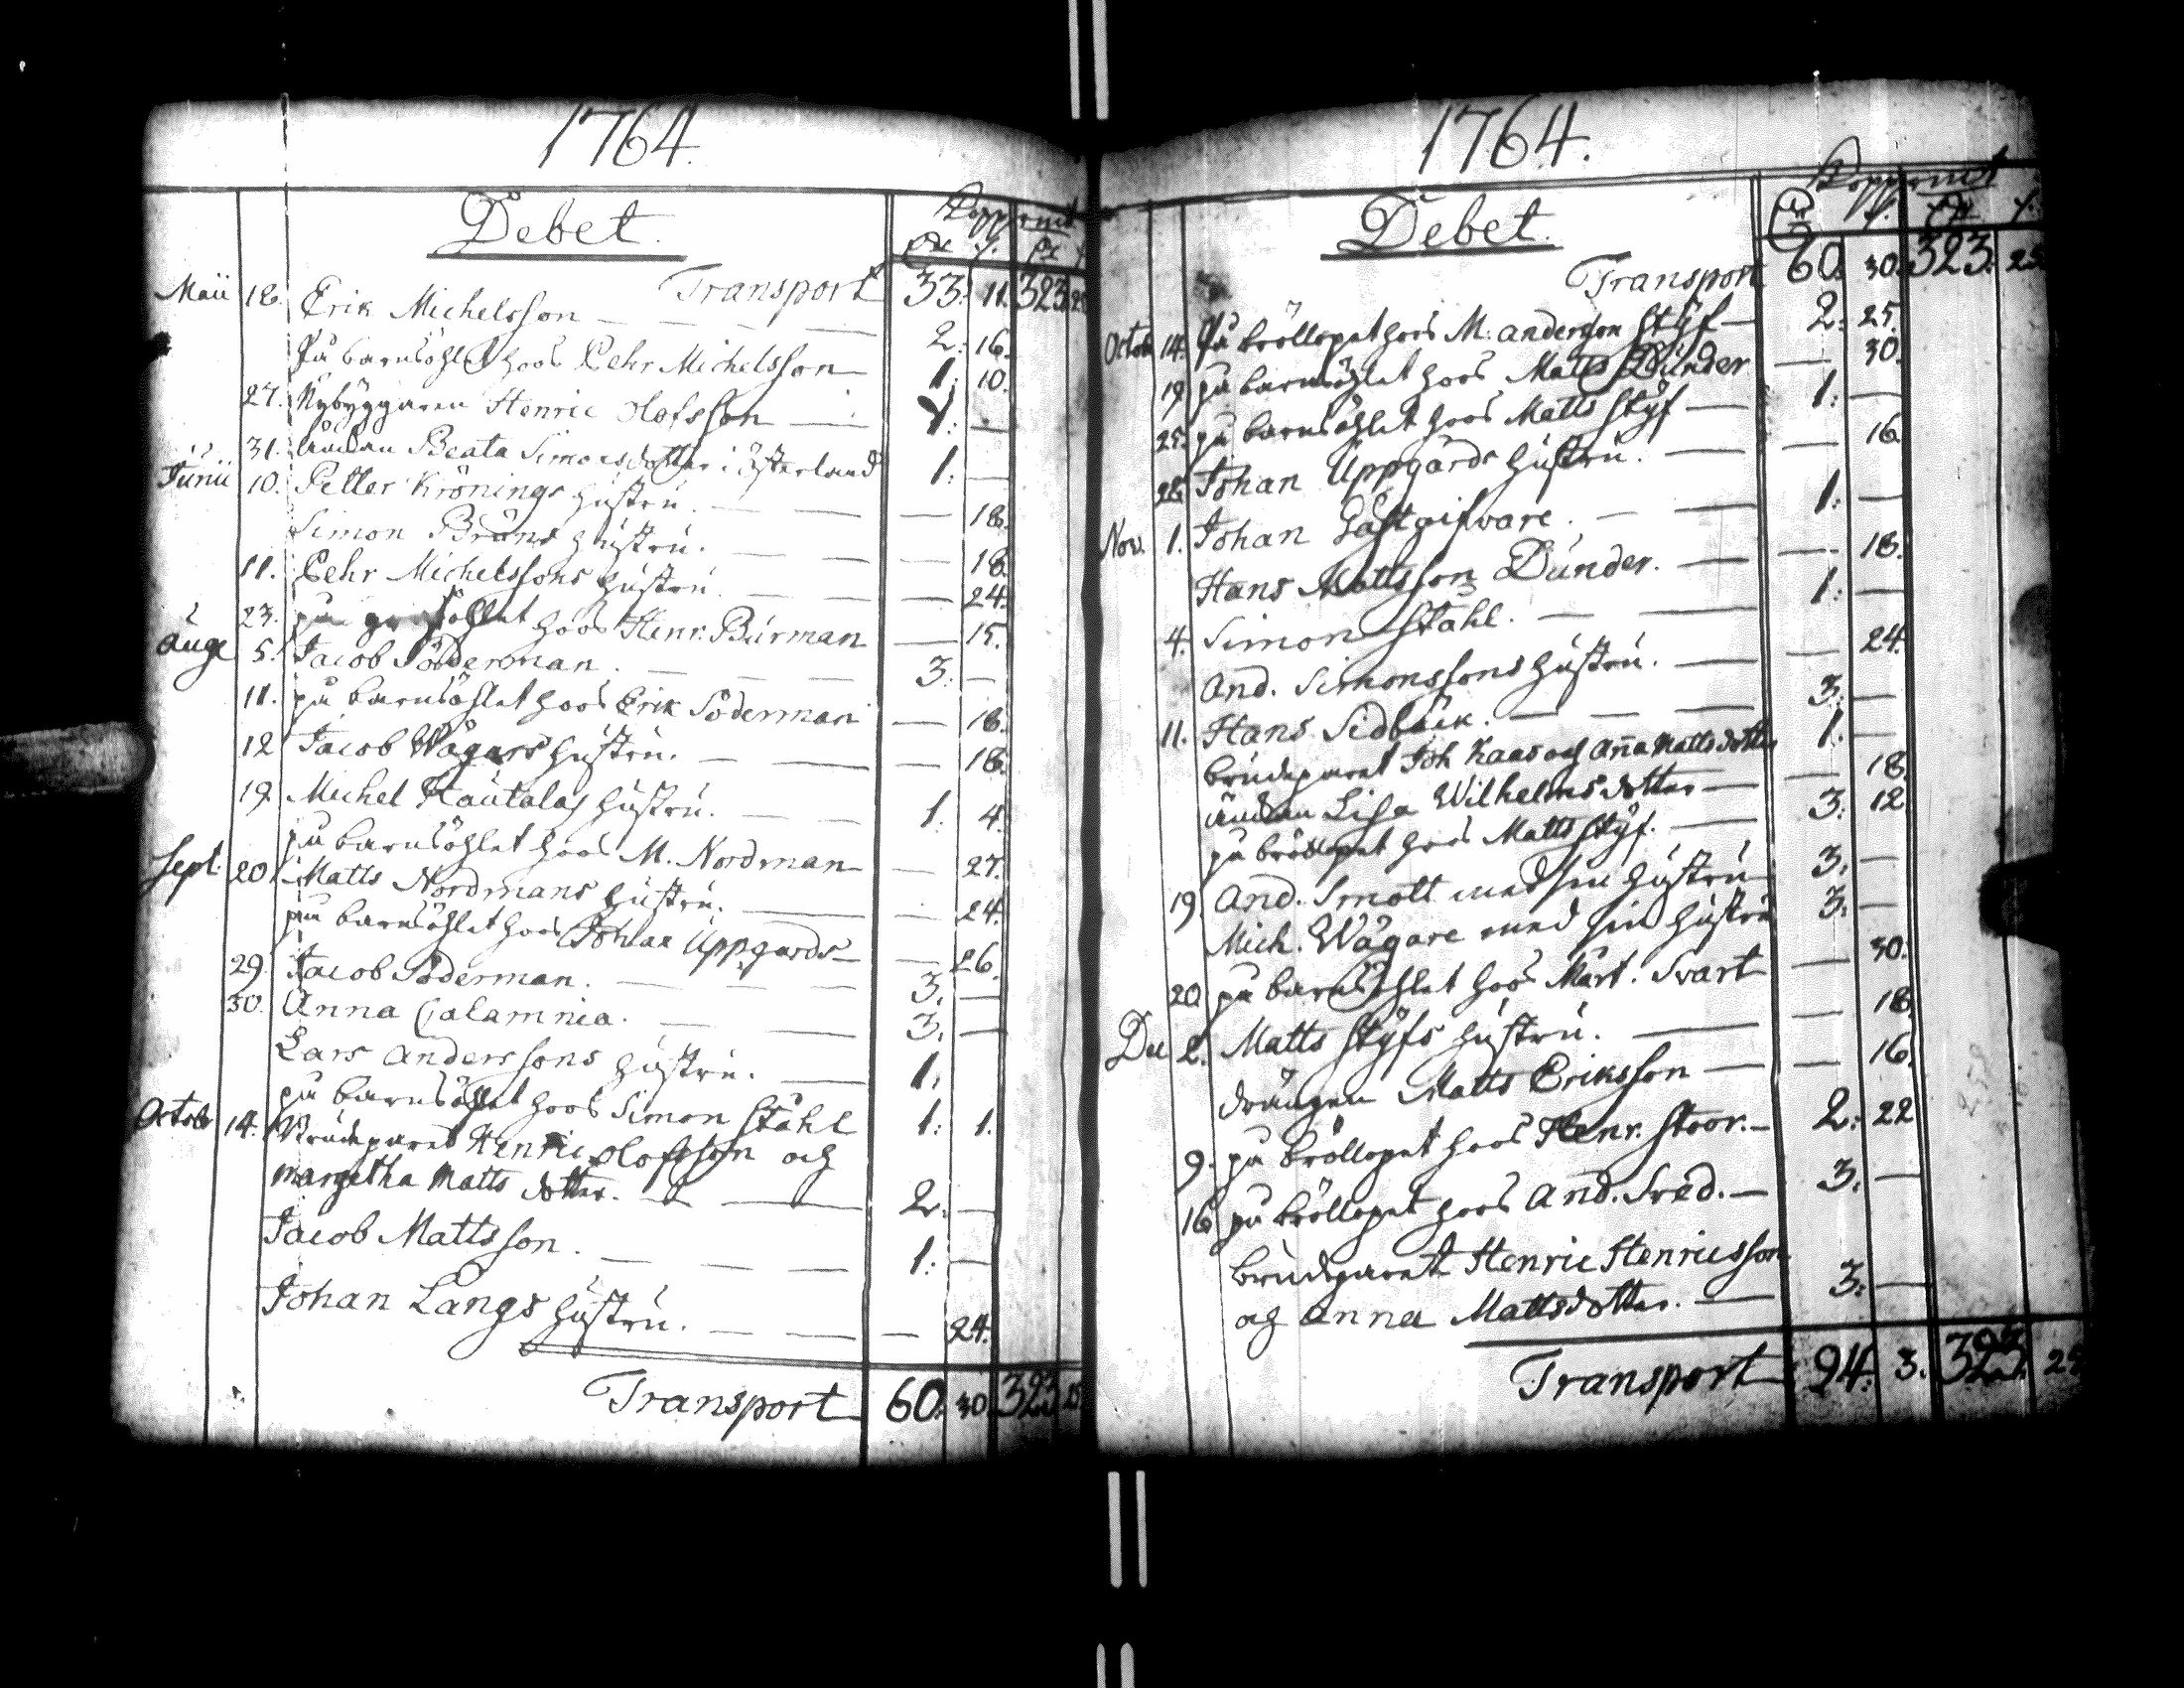 1764.
Debet.
Koppr mt
Transport 33: 11. 323
Maii 18. Erik Michelsson — 2: 16.
På barnsöhlet hoos Pehr Michelsson — 1. 10.
27. Nybyggaren Henric Olofsson — 1: —
31. Änkan Beata Simonsdotter i Österland 1: —
Junii 10. Petter Krönings hustru. — 18.
Simon Bruns hustru. — 18.
11. Pehr Michelssons hustru. — 24.
23. på hoos Henr. Burman — 15.
Aug 5. Jacob Söderman. — 3. —
11. på barnsöhlet hoos Erik Söderman — 18.
12 Jacob Wägars hustru. — 18.
19. Michel Hautalas hustru. — 1. 4.
på barnsöhlet hoos M. Nordman — 27.
Sept. 20. Matts Nordmans hustru. — 24.
på barnsöhlet hoos Johan Uppgårds — 26.
29. Jacob Söderman. — 3. —
30. Anna Calamnia. — 3. —
Lars Anderssons hustru. — 1.
på barnsöhlet hoos Simon Ståhl 1: 1.
Octob 14. Brudparet Henric Olofsson och
Margetha Matts dotter. — 2. —
Jacob Mattsson. — 1: —
Johan Långs hustru. — 24.
Transport 60. 30. 323 25
1764.
Debet.
Kopp r mt
Transport 60. 30. 323. 25
Octob 14. På bröllopet hoos M. Andersson Styf — 2: 25.
19 på barnsöhlet hoos Matts Dunder — 30.
25. på barnsöhlet hoos Matts Styf — 1: —
28. Johan Uppgårds hustru. — 16
Nov. 1. Johan Gästgifvare. — 1: —
Hans Mattsson Dunder. — 18.
4. Simon Ståhl. — 1: —
And. Simonssons hustru. — 24.
11. Hans Sidbäck. — 3: —
brudparet Joh Kaas och Aña Mattsdotter 1. —
änkan Lisa Wilhelmsdotter — 18.
på bröllopet hoos Matts Styf. — 3: 12
19. And. Smott med sin hustru 3: —
Mich. Wägare med sin hustru 3: —
20. på barnsöhlet hoos Mårt. Svart — 30.
Dec 2. Matts Styfs hustru. — 18.
drängen Matts Eriksson — 16.
9. på bröllopet hoos Henr. Stoor. — 2: 22
16 på bröllopet hoos And. Sved. — 3. —
brudparet Henric Henricsson
och Anna Mattsdotter. — 3: —
Transport 94. 3. 323 25